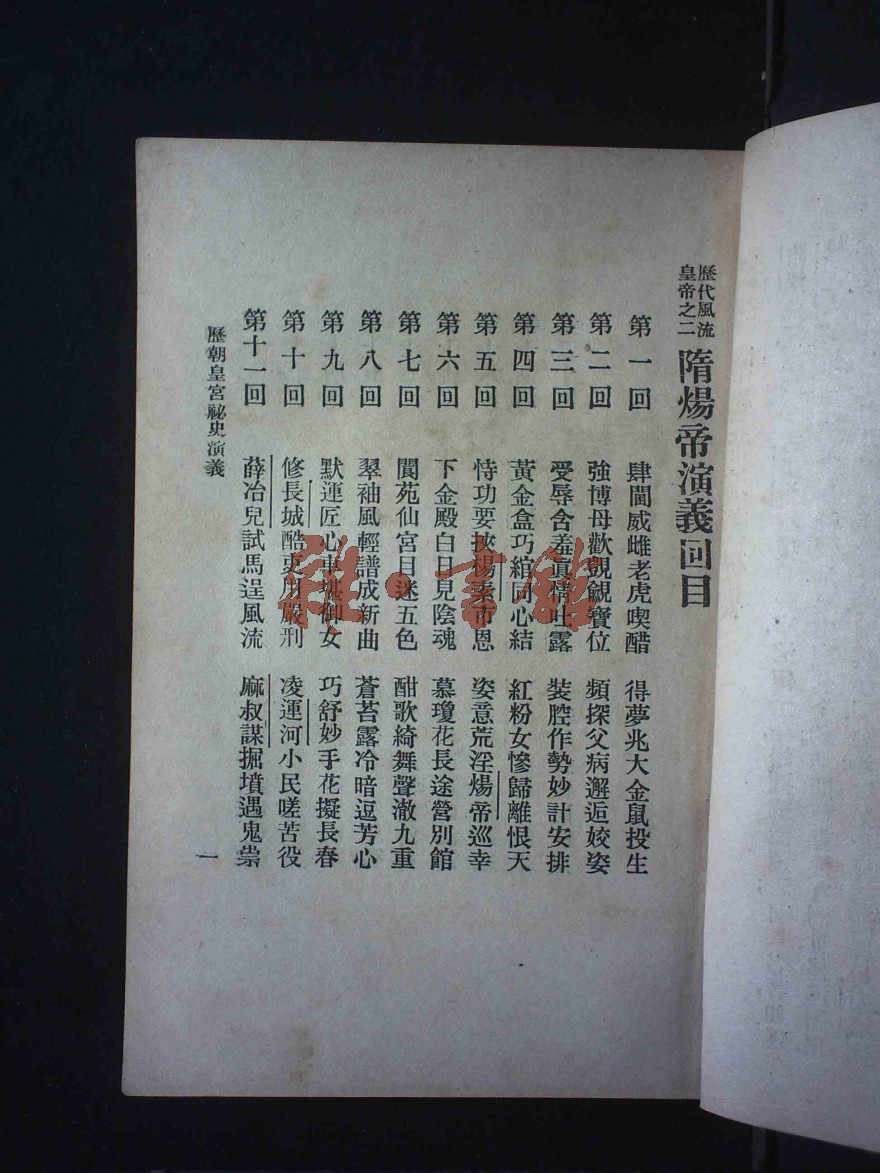 歷代風流
皇帝之二
隋煬帝演義回目
第一回 肆閫威雌老虎喫醋 得夢兆大金鼠投生
第二回 強博母歡覬覦寶位 頻探父病邂逅姣姿
第三回 受辱含羞真情吐露 裝腔作勢妙計安排
第四回 黃金盒巧綰同心結 紅粉女慘歸離恨天
第五回 恃功要挾楊素市恩 姿意荒淫煬帝巡幸
第六回 下金殿白日見陰魂 慕瓊花長途營別館
第七回 閬苑仙宮目迷五色 酣歌綺舞聲澈九重
第八回 翠袖風輕譜成新曲 蒼苔露冷暗逗芳心
第九回 默運匠心車堪御女 巧舒妙手花擬長春
第十回 修長城酷吏用嚴刑 凌運河小民嗟苦役
第十一回 薛冶兒試馬逞風流 麻叔謀掘墳遇鬼祟
歷朝皇宮祕史演義
一
雅·書館